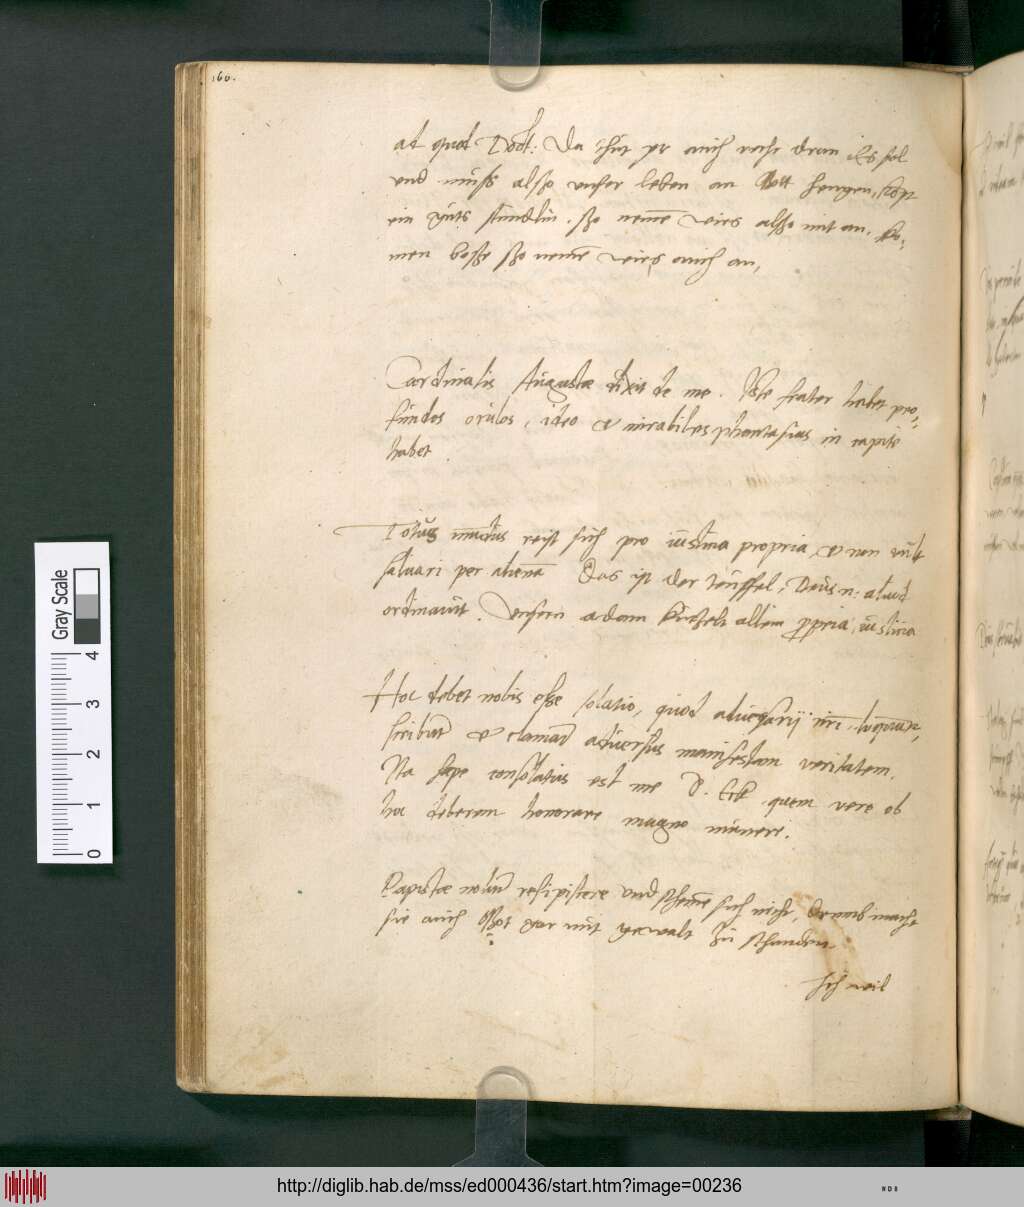 166.
at quod Doct: Da thut yr auch recht dran Es sol
und muss also unser leben an Gott hengen, kompt
ein guts stundlin, sso nemen wirs also mit an. Ko-
men bosse sso nemen wirs auch an,
Cardinalis Augustae dixit de me. Iste frater habet pro-
fundos oculos, ideo et mirabiles phantasias in capite
habet
Totus mundus reist sich pro iusticia propria, et non vult
salvari per alienā Das ist der teuffel, Deus n: aliud
ordinavit. Unsern adam kutzelt allein ꝓpria iusticia
Hoc debet nobis esse solatio, quod adversarii nrī
scribūt et clamāt adversus manifestam veritatem.
Ita saepe consolatus est me D. Eck quem vere ob
hoc deberem honorare magno munere.
Papistae nolūt resipiscere und schemē sich nicht, drumb macht
sie auch Gott gar mit gewalt zu schanden
Ich weil
Gray Scale
0 1 2 3 4
http://diglib.hab.de/mss/ed000436/start.htm?image=00236